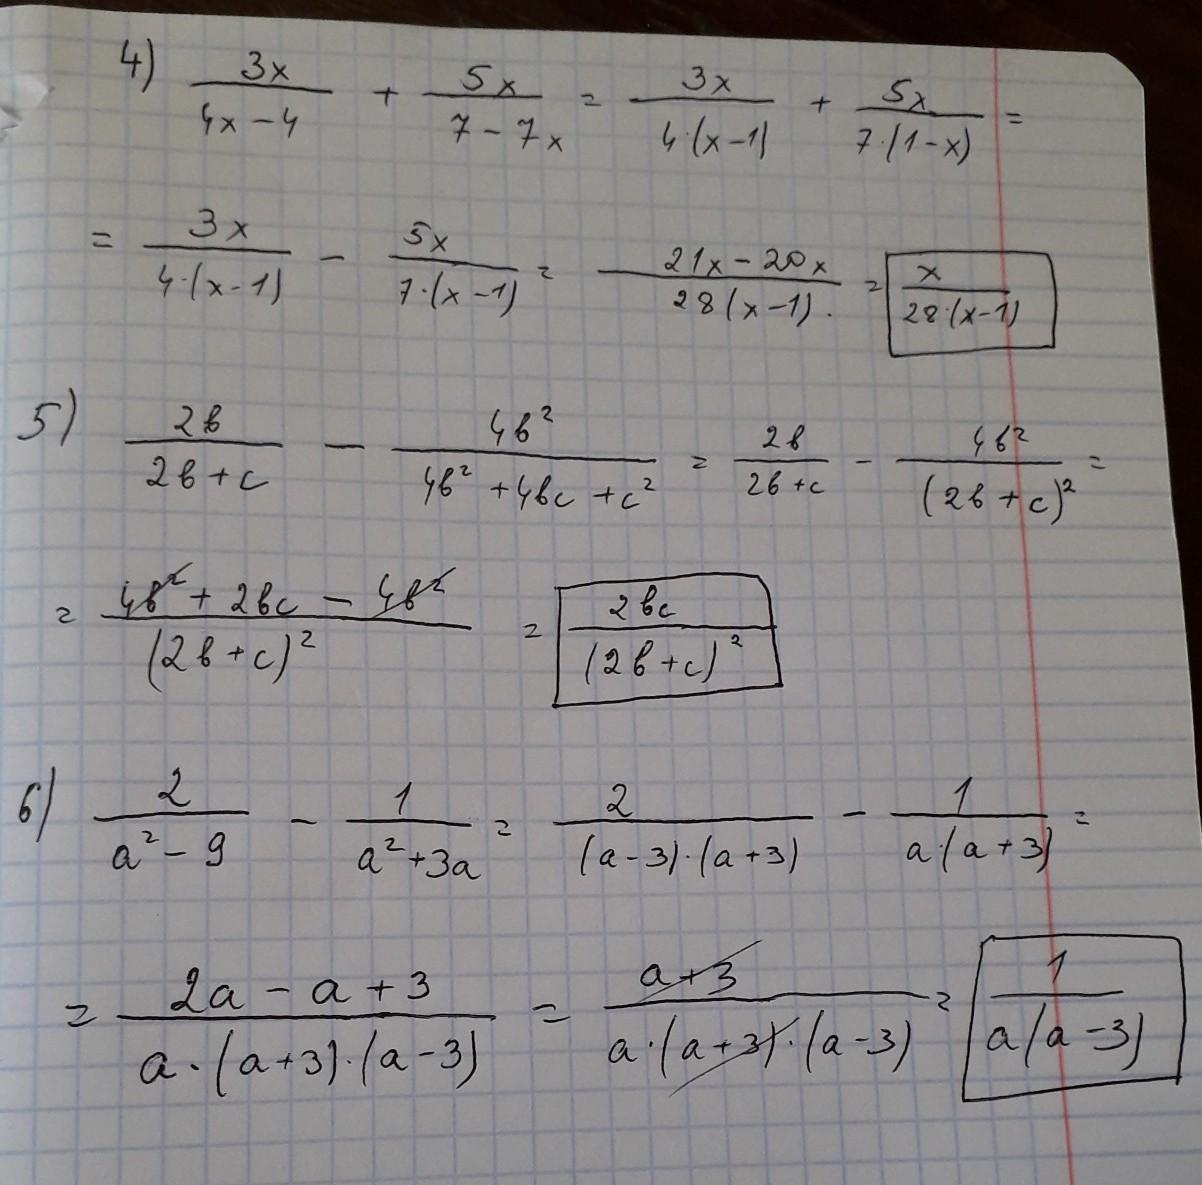 4) 3x/(4x-4) + 5x/(7-7x) = 3x/(4·(x-1)) + 5x/(7·(1-x)) =
= 3x/(4·(x-1)) - 5x/(7·(x-1)) = (21x-20x)/(28(x-1)). = x/(28·(x-1))
5) 2в/(2в+c) - 4в²/(4в²+4вc+c²) = 2в/(2в+c) - 4в²/(2в+c)² =
= (4в²+2вc-4в²)/(2в+c)² = 2вc/(2в+c)²
6) 2/(a²-9) - 1/(a²+3a) = 2/((a-3)·(a+3)) - 1/(a·(a+3)) =
= (2a-a+3)/(a·(a+3)·(a-3)) = (a+3)/(a·(a+3)·(a-3)) = 1/(a(a-3))